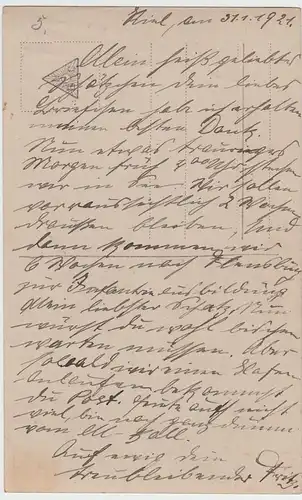 5. Kiel, den 31.1.1921.
Mein heiß geliebtes
dein liebes
Briefchen habe ich erhalten
meinen besten Dank.
Nun etwas trauriges
Morgen früh 9°° Uhr stechen
wir in See. Wir sollen
voraussichtlich 2 Wochen
draußen bleiben, und
dann kommen wir
6 Wochen nach Flensburg
zur Infanterieausbildung
Mein liebster Schatz, Nun
würst du wohl bischen
warten müssen. Aber
sobald wir einen Hafen
anlaufen bekommst
du Post. Heute auch nicht
viel bin noch ganz dumm
vom Ball.
Auf ewig dein
treubleibender Fritz.